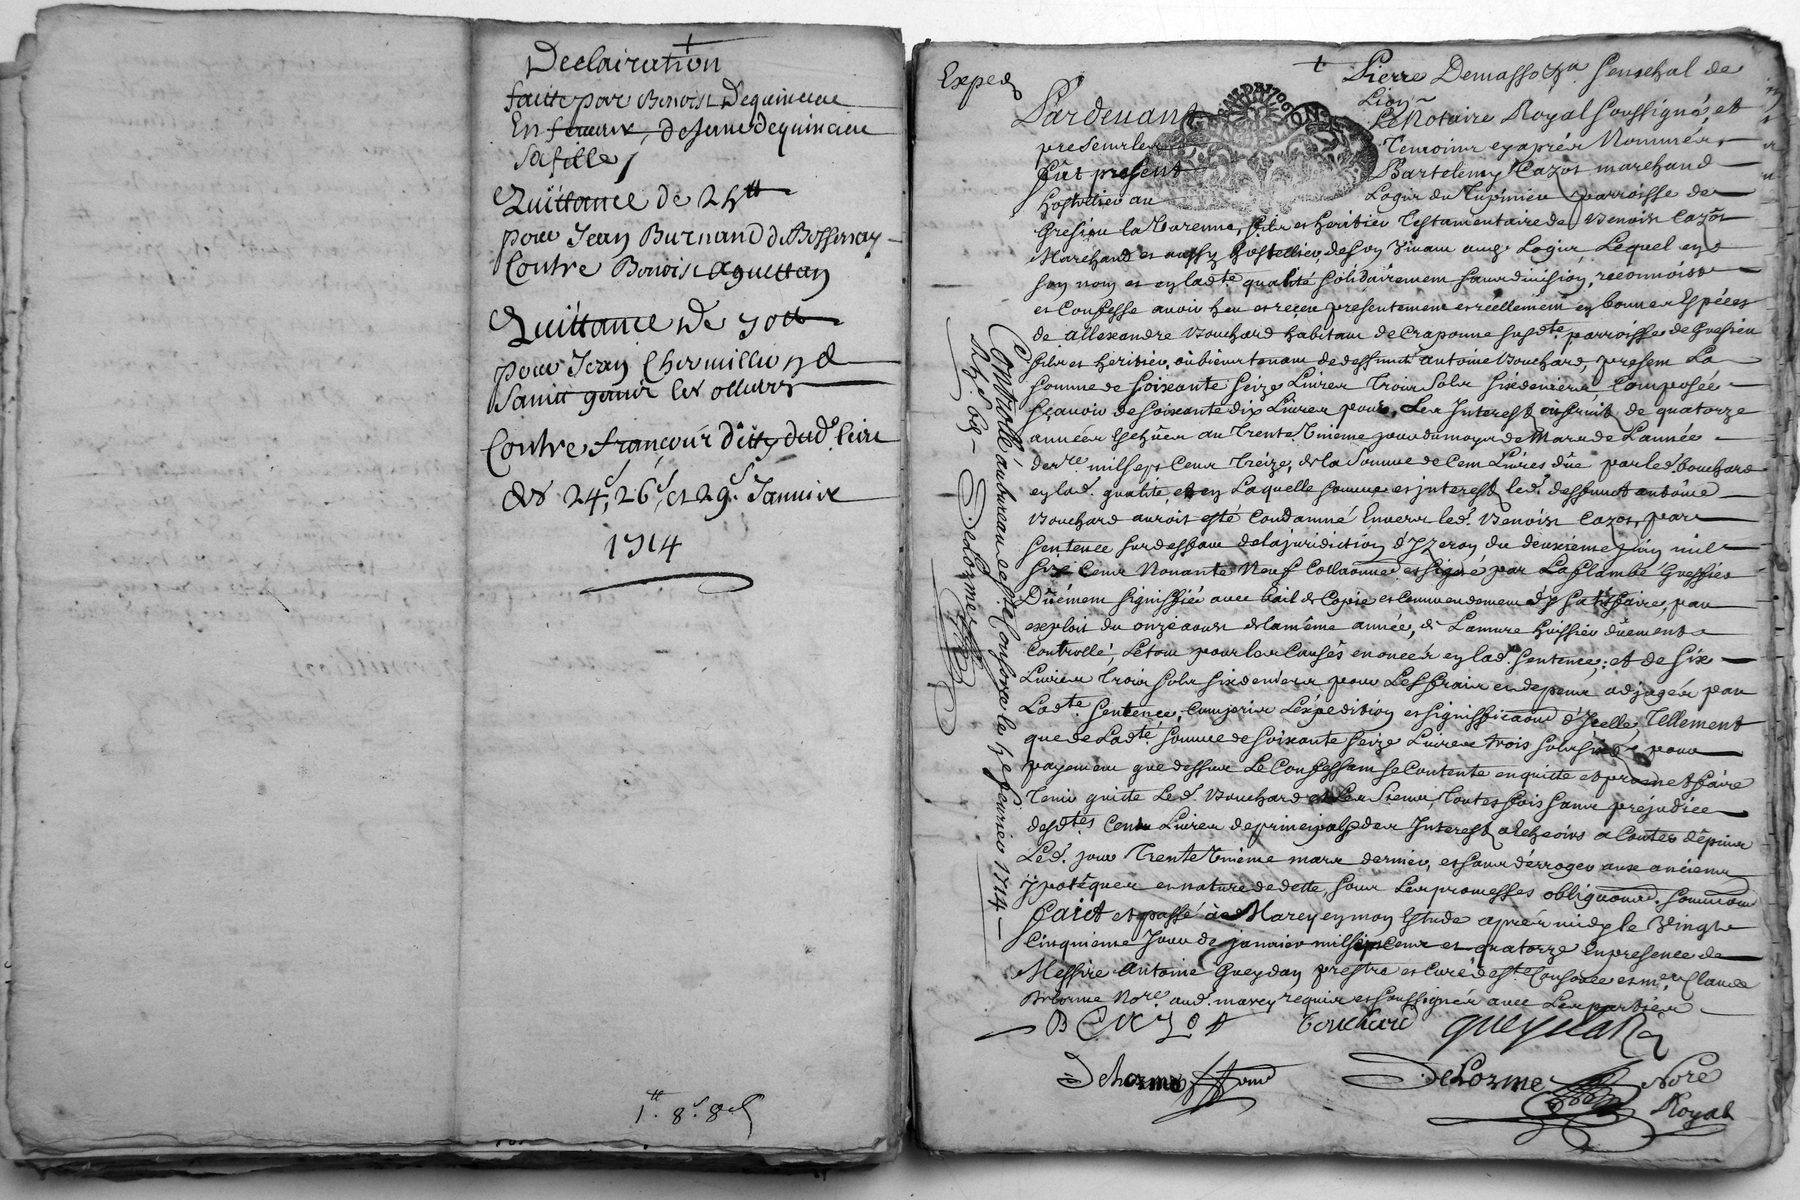 Declairation
faitte par Benoist Dequincieu
En faveur, de Jeanne dequincieu
Sa fille
Quittance de 24tt
pour Jean Burnand de Bessenay
Contre Benoist
Quittance de 70tt
pour Jean
Saint genis les ollieres
Contre françois dud. lieu
des 24e, 26e, et 29e Janvier
1714
1tt. 8s. 8d
Exped
Pierre Demasso Senechal de
Lion
Pardevant Le Notaire Royal soussigné, et
presents les Temoins cy aprés Nommés
fut present Bartelemy Cazot marchand
hostellier au Logis du Tupinier parroisse de
Gresieu la Varenne, fils et heritier Testamentaire de Benoist Cazot
Marchand et aussy hostellier de son vivant aud. Logis, Lequel en
son nom et en ladte qualité solidairement sans division, reconnoist
et Confesse avoir heu et reçeu presentement et réellement en bonnes Espéces
de allexandre Bouchard habitant de Craponne susdte parroisse de Gresieu
fils et heritier, ou bientenant de deffunt antoine Bouchard, present La
somme de soixante seize Livres Trois sols six deniers, Composée
sçavoir de soixante dix Livres pour Les Interest ou fruit de quatorze
années Echües au Trente Unieme jour du moys de Mars de L'année
derre mil sept Cent Treize, de la somme de Cent Livres düe par led. bouchard
en lad. qualité, et en Laquelle somme et interest led. deffunct antoine
Bouchard auroit esté Condamné Envers led. Benoist Cazot, par
sentence sur deffaut de la juridiction d'Yzeron du deuxieme juin mil
six Cent Nonante Neuf Collationnée et signée par Laflambé Greffier
Düement signiffiée avec bail de Copie et Commendement d'y satisfaire, par
exploit du onze aoust de la même année, de Lamure huissier düement
Controllé, Le tout pour les Causes enoncées en lad. sentence; et de six
Livres Trois sols six deniers pour Les fraix et depens adjugés par
Ladte sentence, Compris L'expedition et signiffication d'Icelle, Tellement
que de Ladte somme de soixante seize Livres trois sols six d. pour
payement que dessus Le Confessant se Contente en quitte et promet faire
Tenir quitte Led. Bouchard et Les Siens Toutes fois sans prejudice
desdtes Cent Livres de principal et des Interest a Echeoirs a Conter depuis
Led. jour Trente Unième mars dernier, et sans dérroger aux anciennes
ypotéques et nature de dette, sous Les promesses obligations, soumissions
Faict et passé à Marcy en mon Estude aprés midy le Vingt
Cinquieme Jour de janvier mil sept Cent et quatorze En presence de
Messire Antoine Gueydan prestre et Curé de Ste Consorce et me Claude
Delorme Nore. aud. marcy requis et soussignés avec Les parties
B CAZOT bouchard gueydan
Delorme Delorme Nore
Royal
Controllé au bureau de Ste Consorce le fevrier 1714
Delorme